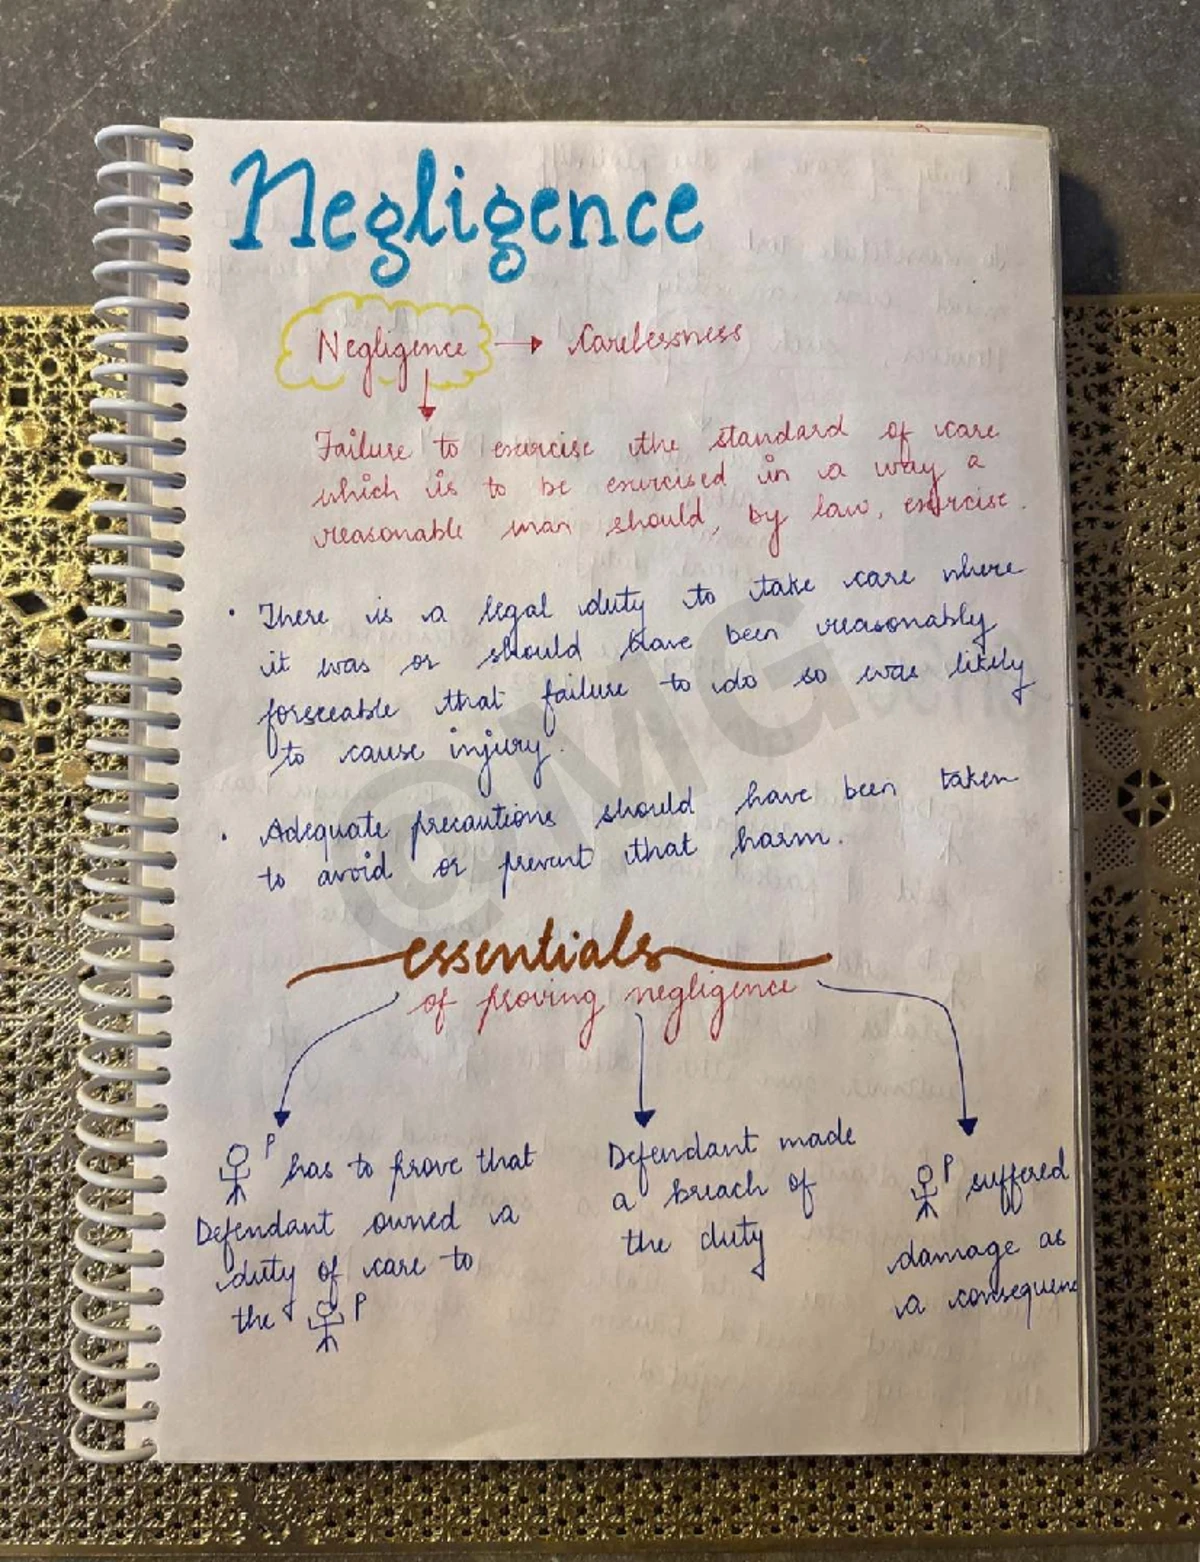 Negligence
Negligence → Carelessness
Failure to exercise the standard of care
which is to be exercised in a way a
reasonable man should, by law, exercise.
• There is a legal duty to take care where
it was or should have been reasonably
forseeable that failure to do so was likely
to cause injury.
• Adequate precautions should have been taken
to avoid or prevent that harm.
essentials
of proving negligence
P has to prove that
Defendant owned a
duty of care to
the P
Defendant made
a breach of
the duty
P suffered
damage as
a consequenc
©MG